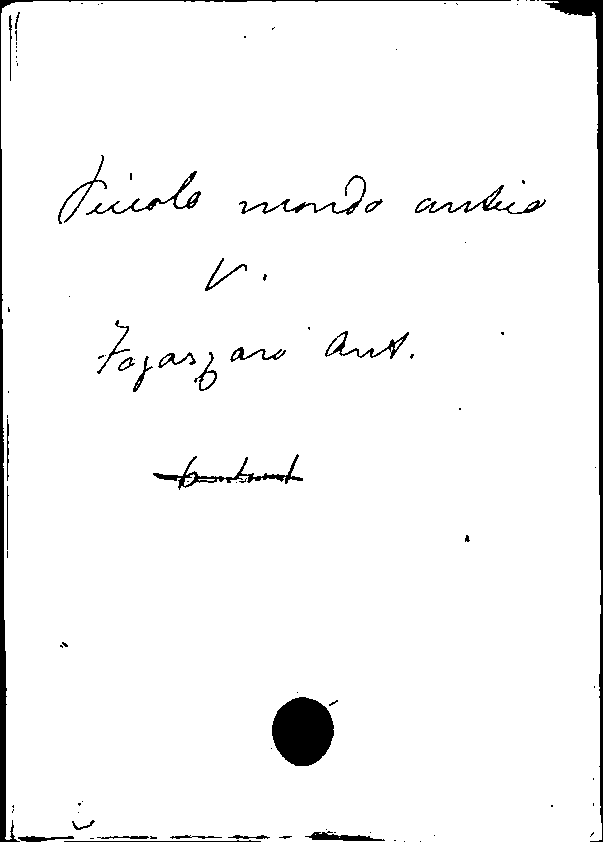 Piccolo mondo antico
V.
Fogazzaro Ant.